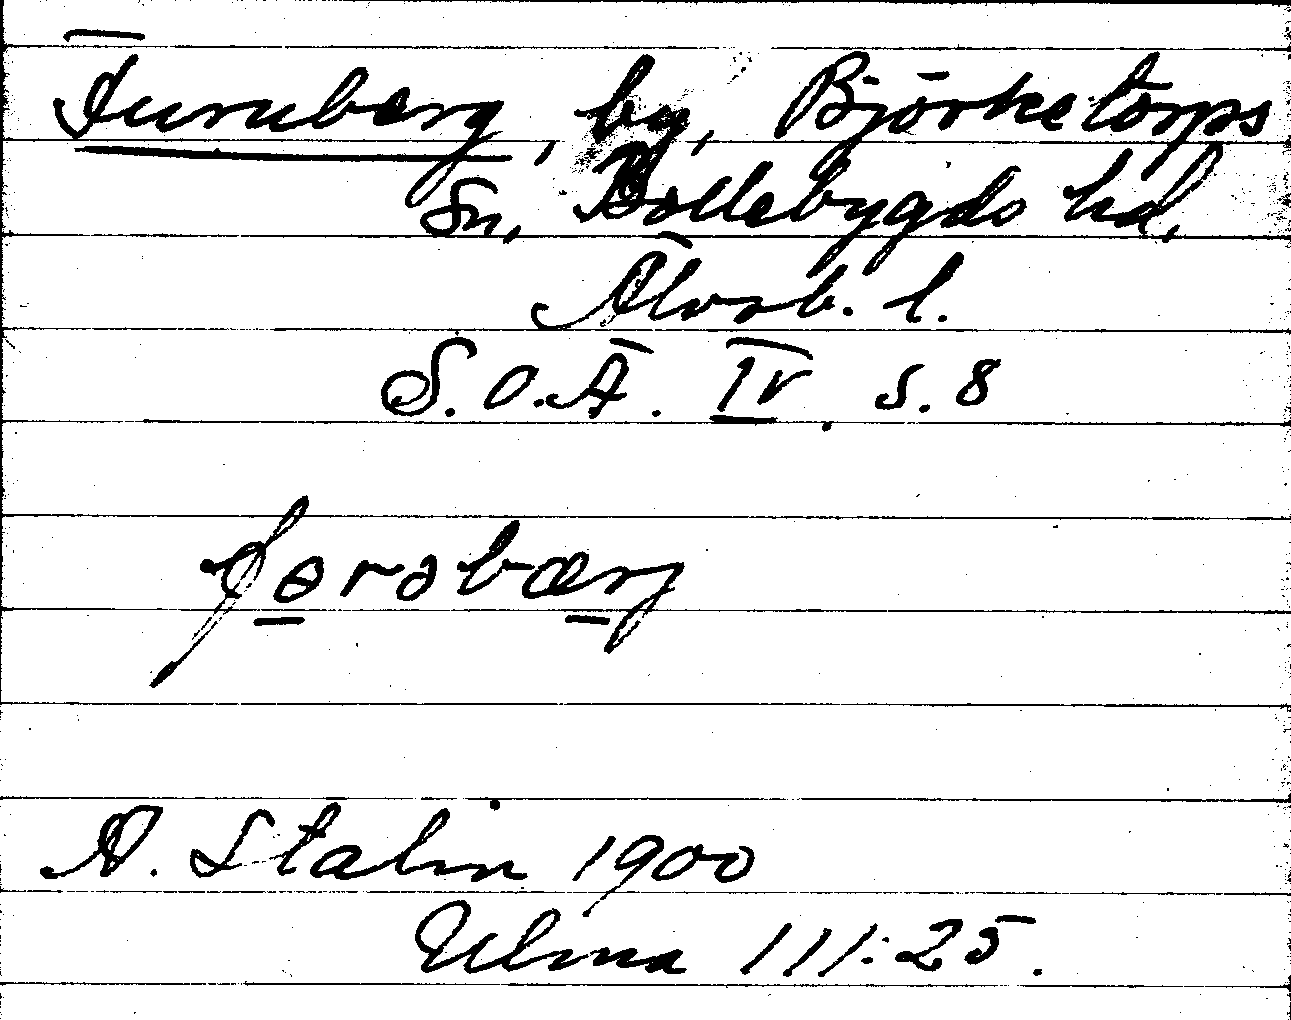 Furuberg, by, Björketorps
sn, Bollebygds hd,
Älvsb. l.
S.O.Ä. IV s. 8
fɵrəbærj
A. Stalin 1900
Ulma 111:25.